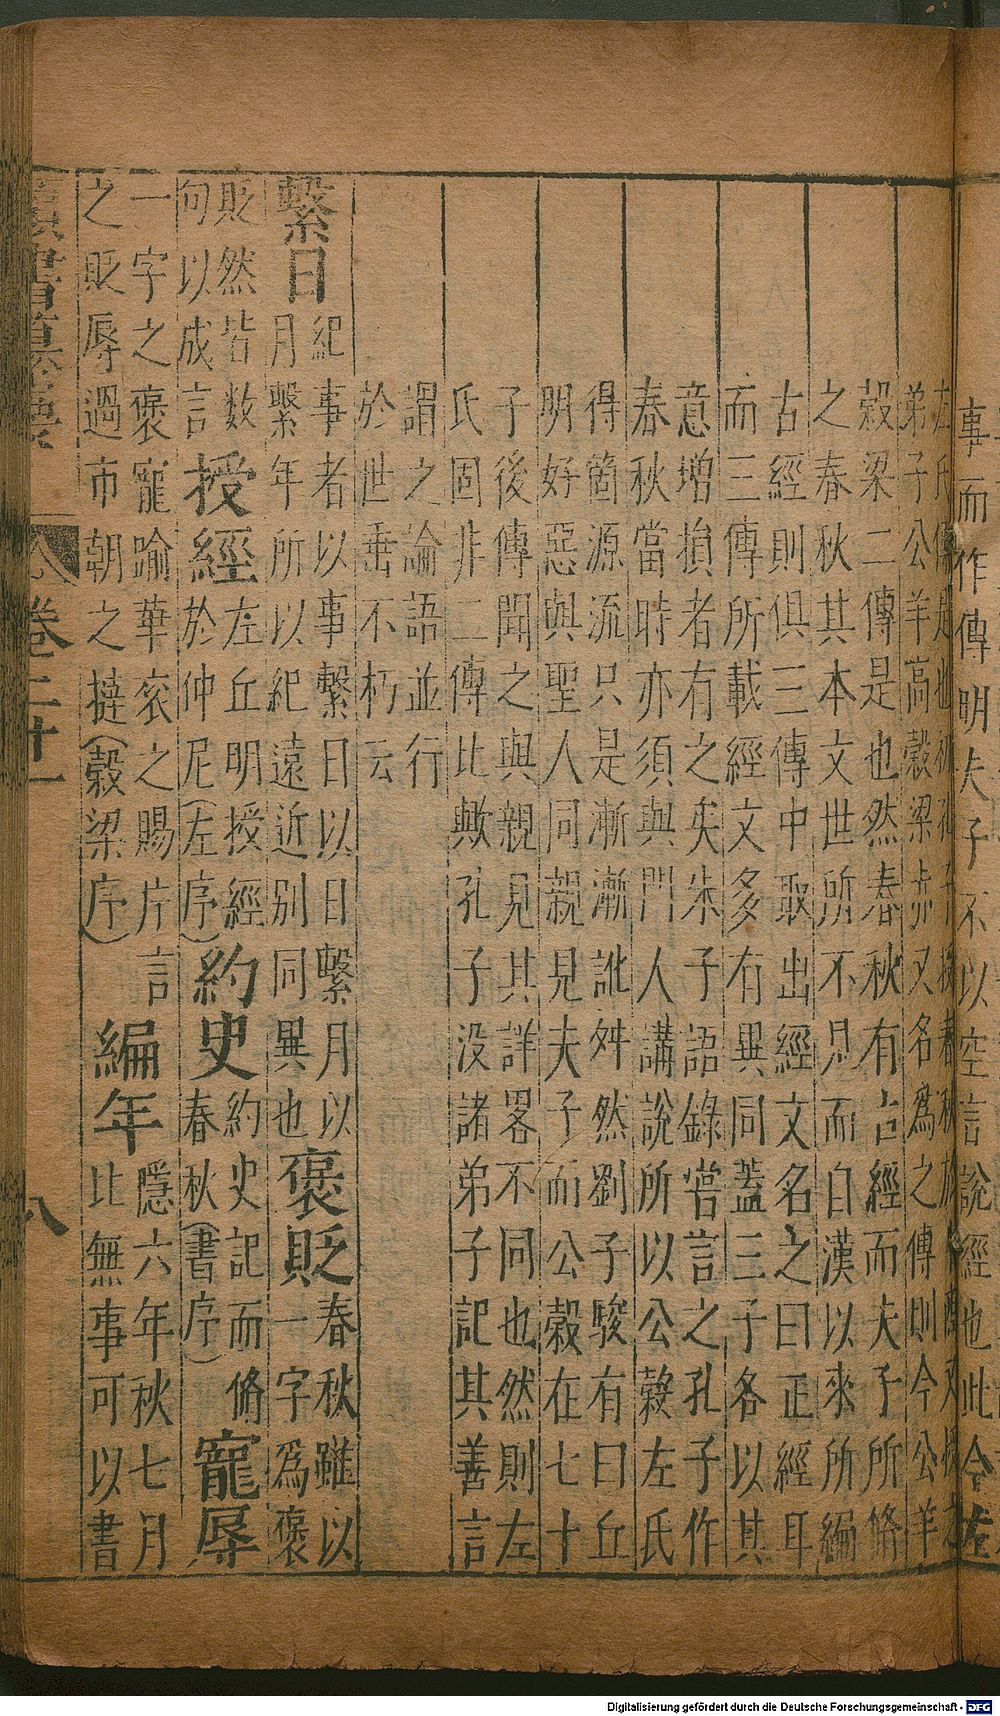 事而作傳明夫子不以空言說經也此今左
左氏傳是也初孔子授春秋於卜商又授之
弟子公羊高穀梁赤又名爲之傳則今公羊
穀梁二傳是也然春秋有古經而夫子所脩
之春秋其本文世所不見而自漢以來所編
古經則俱三傳中取出經文名之曰正經耳
而三傳所載經文多有異同蓋三子各以其
意增損者有之矣朱子語錄嘗言之孔子作
春秋當時亦須與門人講說所以公穀左氏
得箇源流只是漸漸訛舛然劉子駿有曰丘
明好惡與聖人同親見夫子而公穀在七十
子後傳聞之與親見其詳畧不同也然則左
氏固非二傳比歟孔子没諸弟子記其善言
謂之論語並行
於世垂不朽云
繫日
紀事者以事繫日以日繫月以
月繫年所以紀遠近别同異也
褒貶
春秋雖以
一字為褒
貶然皆數
句以成言
授經
左丘明授經
於仲尼(左序)
約史
約史記而脩
春秋(書序)
寵辱
一字之褒寵踰華衮之賜片言
之貶辱過市朝之撻(穀梁序)
編年
隱六年秋七月
比無事可以書
卷二十一
八
Digitalisierung gefördert durch die Deutsche Forschungsgemeinschaft - DFG